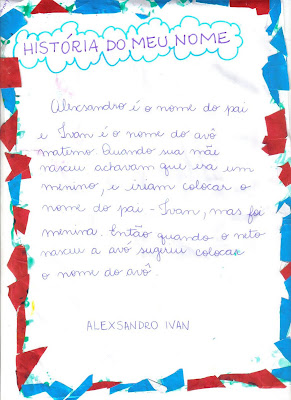 HISTÓRIA DO MEU NOME
Alexsandro é o nome do pai
e Ivan é o nome do avô
materno. Quando sua mãe
nasceu achavam que era um
menino, e iriam colocar o
nome do pai - Ivan, mas foi
menina. Então quando o neto
nasceu a avó sugeriu colocar
o nome do avô.
ALEXSANDRO IVAN